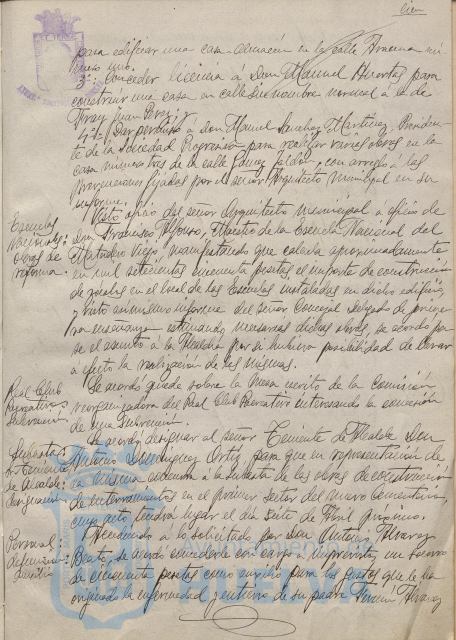 cien
para edificar una casa-almacén en la calle Aracena nú-
mero uno.
3º: Conceder licencia á Don Manuel Huertas para
construir una casa en calle sin nombre normal á la de
Fray Juan Perez.
4º: Dar permiso á don Manuel Sanchez Martinez, Presiden-
te de la Sociedad para realizar varias obras en la
casa número tres de la calle Gomez Jaldon, con arreglo á las
prevenciones fijadas por el señor Arquitecto Municipal en su
informe.
Escuelas
Nacionales:
Obras de
reforma.
Visto oficio del señor Arquitecto municipal á oficio de
Don Francisco Alfonso, Maestro de la Escuela Nacional del
Matadero Viejo, manifestando que calcula aproximadamente
en mil setecientas cincuenta pesetas el importe de construcción
de en el local de las Escuelas instaladas en dicho edificio
y visto asimismo informe del señor Concejal delegado de prime-
ra enseñanza estimando necesarias dichas obras, se acordó pa-
se el asunto á la Alcaldía por si hubiera posibilidad de llevar
á efecto la realización de las mismas.
Real Club
Recreativo
Subvención
Se acordó quede sobre la Mesa escrito de la Comisión
reorganizadora del Real Club Recreativo interesando la concesión
de una subvención.
Subasta:
Teniente
de Alcalde:
designación
Se acordó designar al señor Teniente de Alcalde Don
Antonio Dominguez Ortiz para que en representación de
la misma asista á la subasta de las obras de construcción
de enterramientos en el primer sector del nuevo Cementerio,
cuyo acto tendrá lugar el día siete de Abril próximo.
Personal:
defunción
Auxilio
Accediendo á lo solicitado por Don Antonio Alvarez
Beato, se acordó concederle con cargo á Imprevistos, un socorro
de cincuenta pesetas como auxilio para los gastos que le ha
originado la enfermedad y entierro de su padre Alvarez